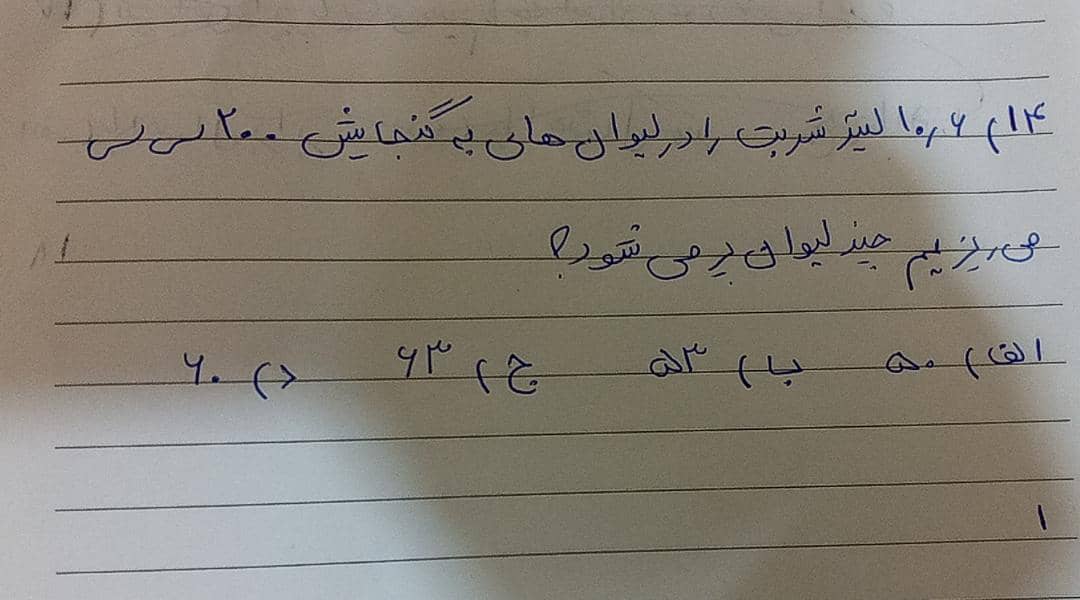 ۱۴) ۱۰٫۶ لیتر شربت را در لیوان های به گنجایش ۲۰۰ سی سی
می ریزیم چند لیوان پر می شود؟
الف) ۵۰ ب) ۵۳ ج) ۶۳ د) ۶۰
۱